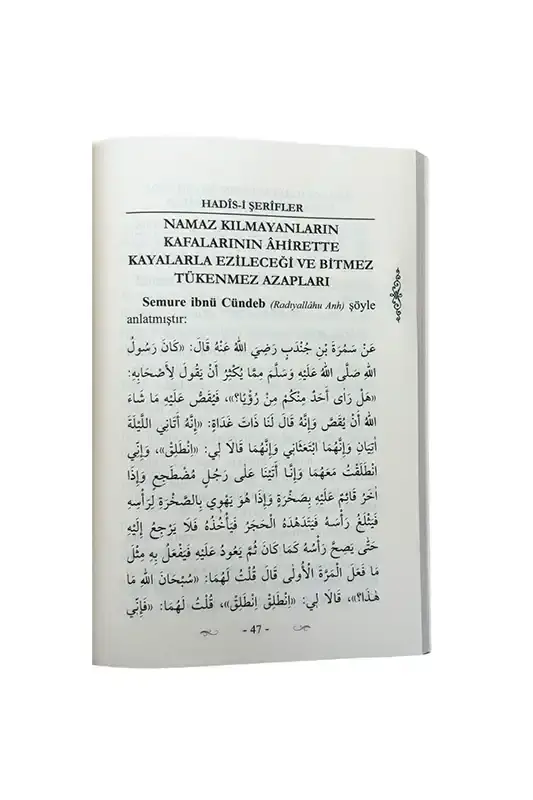 HADÎS-İ ŞERİFLER
NAMAZ KILMAYANLARIN
KAFALARININ ÂHİRETTE
KAYALARLA EZİLECEĞİ VE BİTMEZ
TÜKENMEZ AZAPLARI
Semure ibnü Cündeb (Radıyallâhu Anh) şöyle
anlatmıştır:
عَنْ سَمُرَةَ بْنِ جُنْدَبٍ رَضِيَ اللهُ عَنْهُ قَالَ: «كَانَ رَسُولُ
اللهِ صَلَّى اللهُ عَلَيْهِ وَسَلَّمَ مِمَّا يُكْثِرُ أَنْ يَقُولَ لِأَصْحَابِهِ:
«هَلْ رَأَى أَحَدٌ مِنْكُمْ مِنْ رُؤْيَا؟»، فَيَقُصُّ عَلَيْهِ مَا شَاءَ
اللهُ أَنْ يُقَصَّ وَإِنَّهُ قَالَ لَنَا ذَاتَ غَدَاةٍ: «إِنَّهُ أَتَانِي اللَّيْلَةَ
أٰتِيَانِ وَإِنَّهُمَا ابْتَعَثَانِي وَإِنَّهُمَا قَالَا لِي: «اِنْطَلِقْ»، وَإِنِّي
انْطَلَقْتُ مَعَهُمَا وَإِنَّا أَتَيْنَا عَلَى رَجُلٍ مُضْطَجِعٍ وَإِذَا
أٰخَرُ قَائِمٌ عَلَيْهِ بِصَخْرَةٍ وَإِذَا هُوَ يَهْوِي بِالصَّخْرَةِ لِرَأْسِهِ
فَيَثْلَغُ رَأْسَهُ فَيَتَدَهْدَهُ الْحَجَرُ فَيَأْخُذُهُ فَلَا يَرْجِعُ إِلَيْهِ
حَتَّى يَصِحَّ رَأْسُهُ كَمَا كَانَ ثُمَّ يَعُودُ عَلَيْهِ فَيَفْعَلُ بِهِ مِثْلَ
مَا فَعَلَ الْمَرَّةَ الْأُولَى قَالَ قُلْتُ لَهُمَا: «سُبْحَانَ اللهِ مَا
هٰذَا؟»، قَالَا لِي: «اِنْطَلِقْ اِنْطَلِقْ»، قُلْتُ لَهُمَا: «فَإِنِّي
- 47 -